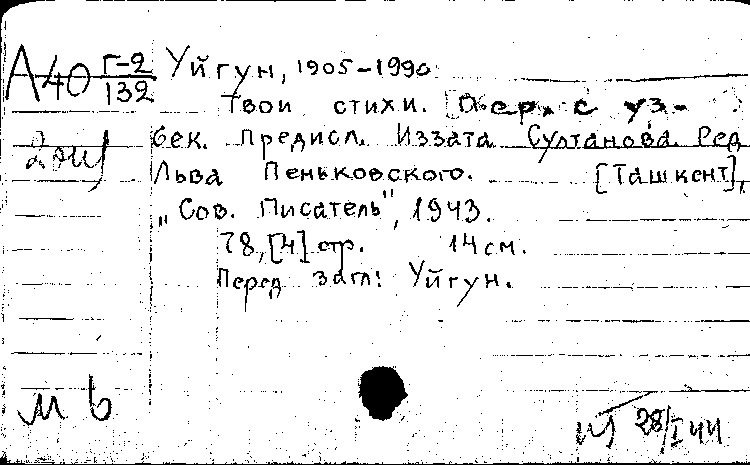 А40 Г-2/132 Уйгун, 1905-1990
Твои стихи. [Пер. с уз-
бек. Предисл. Иззата Султанова. Ред
Льва Пеньковского. [Ташкент],
„Сов. писатель", 1943.
78, [4] стр. 14 см.
Перед загл: Уйгун.
28/I 44